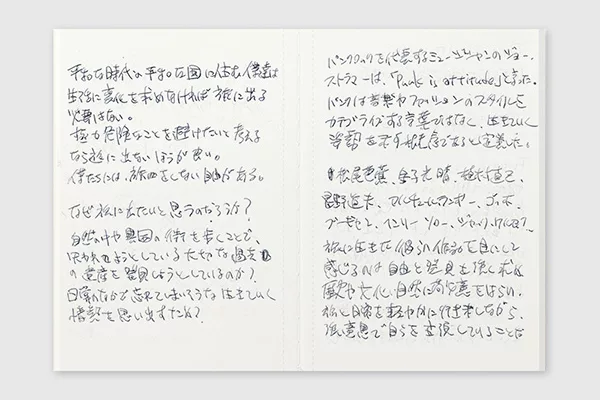 平和な時代の平和な国に住む僕達は
生活に変化を求めなければ旅に出る
必要はない。
極力危険なことを避けたいと考える
なら旅に出ないほうが良い。
僕たちには、旅をしない自由がある。
なぜ旅に出たいと思うのだろうか?
自然の中や異国の街を歩くことで、
失われようとしている大切な過去の
遺産を発見しようとしているのか?
日常のなかで忘れてしまいそうな生きていく
情熱を思い出すため?
パンクロックを代表するミュージシャンのジョー・
ストラマーは、「Punk is attitude」と言った。
パンクは音楽やファッションのスタイルを
カテゴライズする言葉ではなく、生きていく
姿勢を示す言葉であると定義した。
松尾芭蕉、金子光晴、植村直己、
星野道夫、ゴッホ、
ヘンリー・ソロー、ジャック・ケルアック
旅に生きた彼らの作品を目にして
感じるのは自由と発見を強く求め
歴史や文化、自然に敬意をはらい、
旅と日常を軽やかに行き来しながら、
強い意思で自らを表現していることだ